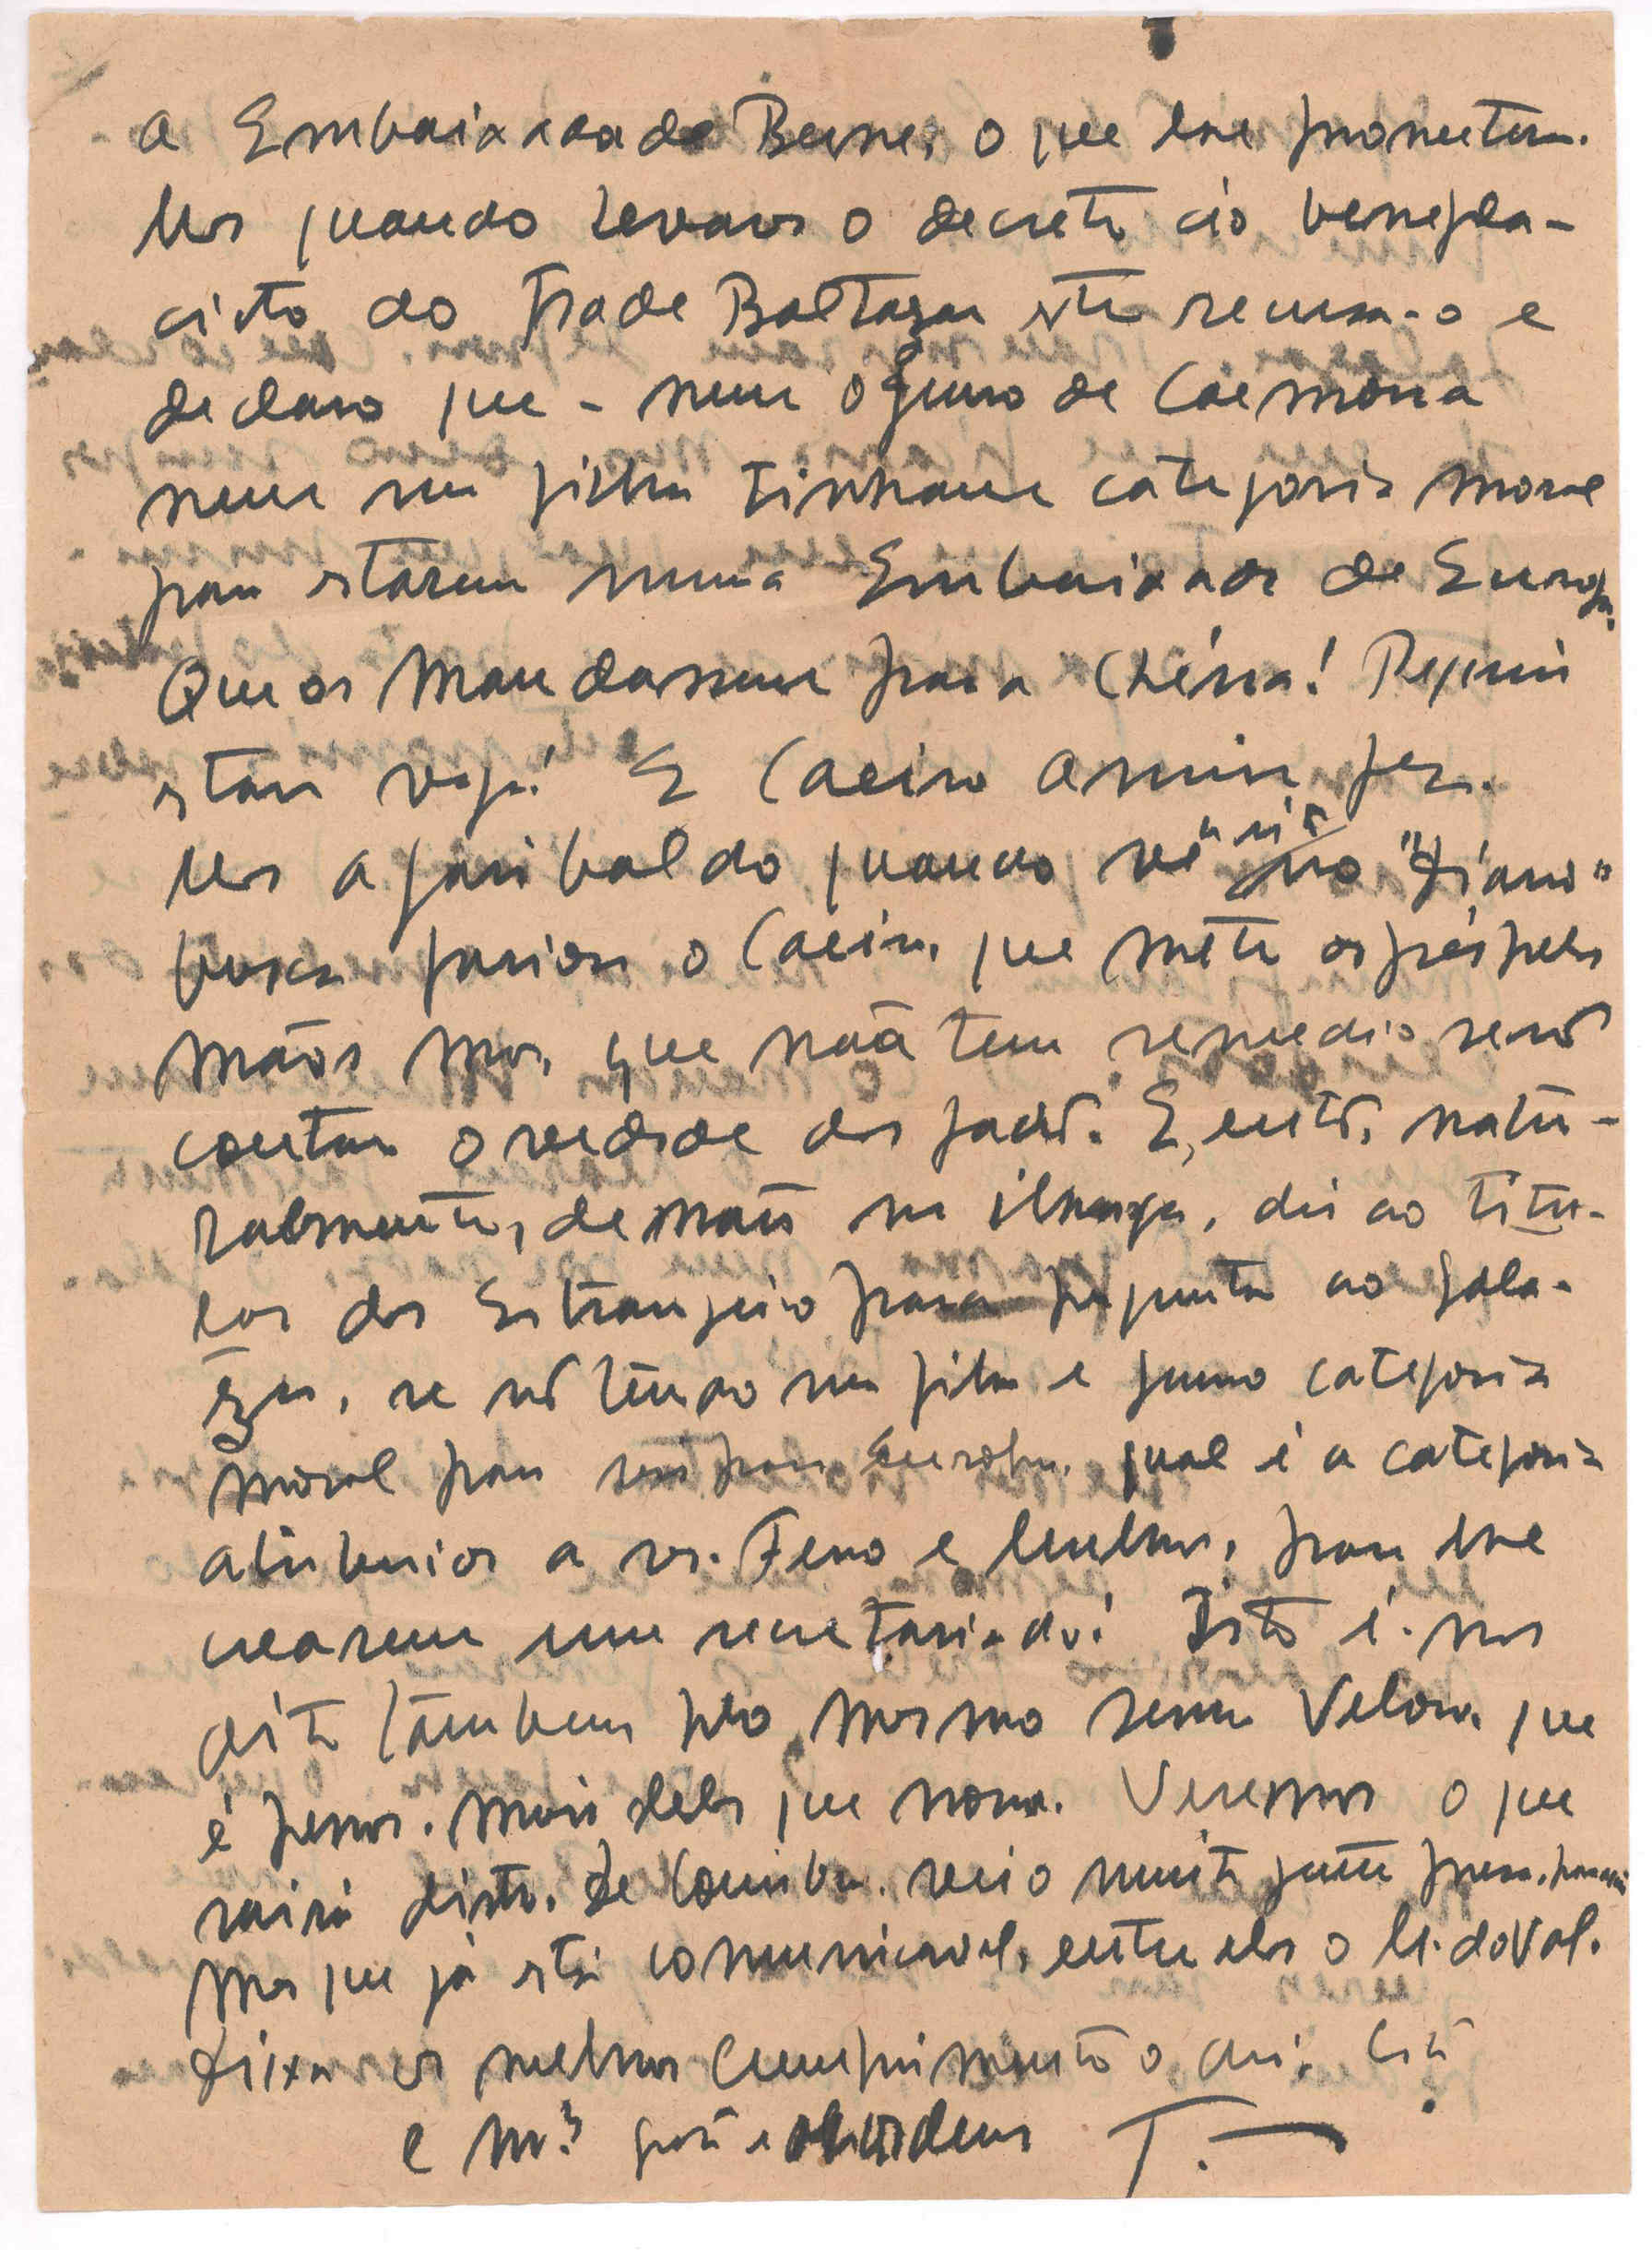 a Embaixada de Berne, o que lhe prometem.
lhes quando levavos o decreto ao benepla-
cito do Frade Baltazar este recusa-o e
declara que - nem o genro de Carmona
nem sua filha tinham categoria moral
para estarem numa Embaixada da Europa.
Que os mandassem para a China!
estava vaga! E Caeiro assim fez.
lhes a quando vê no "Diario"
busca o Caeiro, que mete os pés pelas
mãos mas, que não tem remedio senão
contar a verdade dos factos. E, então, natu-
ralmente, de mãos na ilharga, diz ao titu-
lar dos Estrangeiro para preguntar ao Sala-
zar, se não tendo sua filha e genro categoria
moral para irem para Europa, qual é a categoria
atribuida a sr. Ferro e mulher, para lhe
crearem um secretariado! Isto é-nos
dito tambem pelo mesmo Velow. que
é pessoa. mais deles que nossa. Veremos o que
sairá disto. De Coimbra. veio muita gente presa,
mas que já está comunicavel, entre eles o M. do Val.
Deixa os melhores cumprimentos o
e m.to grato e T.